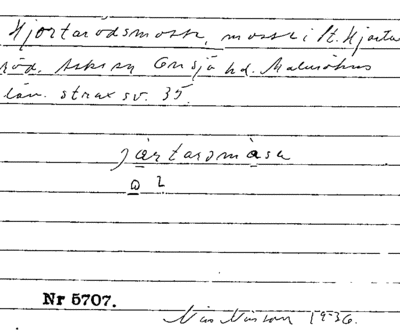 Hjortarödsmosse, mosse i St. Hjorta
röd, Asks sn Onsjö hd. Malmöhus
län. strax sv. 35.
jartarsmåsa
a 2
Nr 5707.
Nils Nilsson 1936.